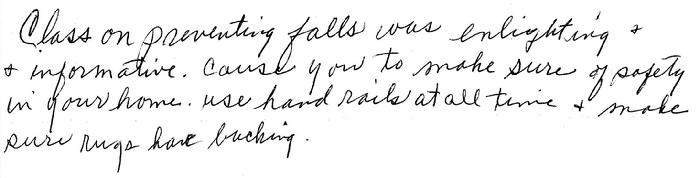 Class on preventing falls was enlighting +
+ informative. Cause you to make sure of safety
in your home. use hand rails at all time + make
sure rugs have backing.